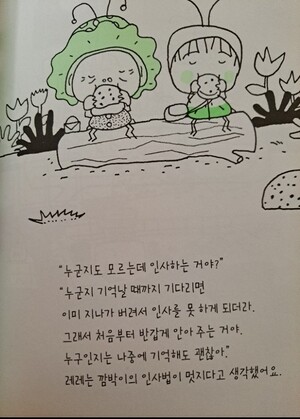 “누군지도 모르는데 인사하는 거야?”
“누군지 기억날 때까지 기다리면
이미 지나가 버려서 인사를 못 하게 되더라.
그래서 처음부터 반갑게 안아 주는 거야.
누구인지는 나중에 기억해도 괜찮아.”
레레는 깜박이의 인사법이 멋지다고 생각했어요.